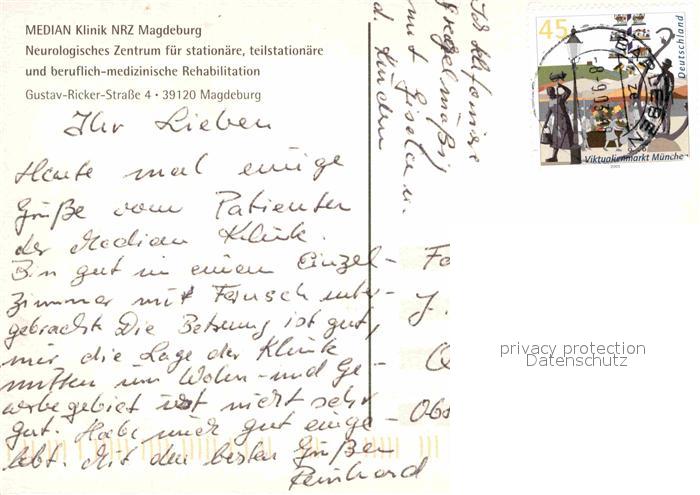 MEDIAN Klinik NRZ Magdeburg
Neurologisches Zentrum für stationäre, teilstationäre
und beruflich-medizinische Rehabilitation
Gustav-Ricker-Straße 4 • 39120 Magdeburg
Ihr Lieben
Heute mal einige
Grüße vom Patienten
der Median Klinik.
Bin gut in einem Einzel-
zimmer mit Fernseh unter-
gebracht. Die Betreuung ist gut,
nur die Lage der Klinik
mitten im Wohn- und Ge-
werbegebiet ist nicht sehr
gut. Habe mich gut einge-
lebt. Mit den besten Grüßen
Reinhard
Ich telefoniere
regelmäßig
mit Gisela u.
d. Kindern
Fa
J.
Obs
45
Deutschland
Viktualienmarkt Münche
privacy protection
Datenschutz